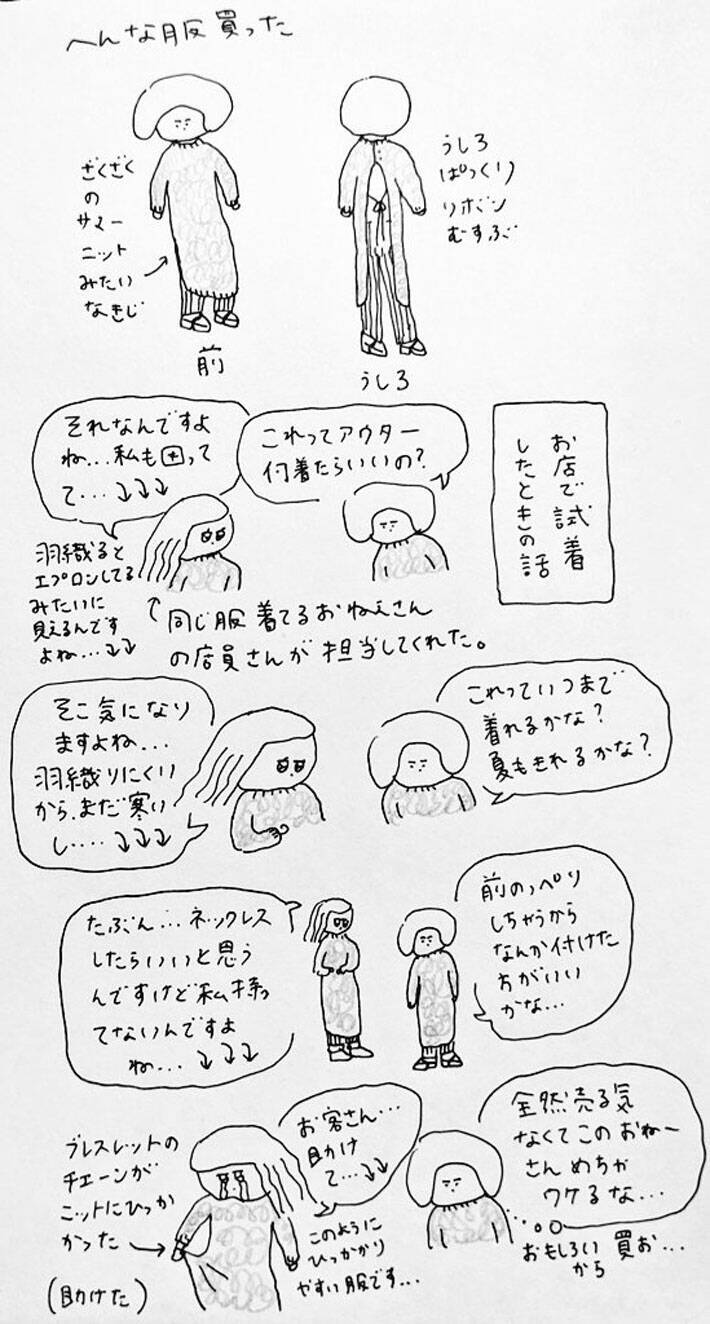 へんな服買った
ざくざく
の
サマー
ニット
みたい
なきじ
前
うしろ
ぱっくり
リボン
むすぶ
うしろ
お店で試着
したときの話
これってアウター
何着たらいいの?
それなんですよ
ね...私も困って
て...↓↓↓
羽織ると
エプロンしてる
みたいに
見えるんです
よね...↓↓
同じ服着てるおねえさん
の店員さんが担当してくれた。
これっていつまで
着れるかな?
夏もきれるかな?
そこ気になり
ますよね...
羽織りにくい
から、まだ寒い
し....↓↓↓
前のっぺり
しちゃうから
なんか付けた
方がいい
かな...
たぶん...ネックレス
したらいいと思う
んですけど私持っ
てないんですよ
ね...↓↓↓
ブレスレットの
チェーンが
ニットにひっか
かった
(助けた)
お客さん...
助け
て...↓↓
このように
ひっかかり
やすい服です...
全然売る気
なくてこのおねー
さんめちゃ
ウケるな...
おもしろい
から
買お...